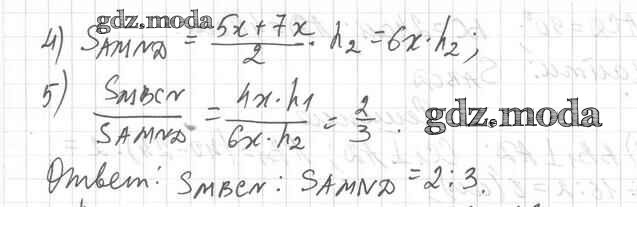 gdz.moda
4) S_AMND = (5x + 7x)/2 · h₂ = 6x · h₂;
5) S_MBCN/S_AMND = (4x · h₁)/(6x · h₂) = 2/3.
gdz.moda
Ответ: S_MBCN : S_AMND = 2 : 3.